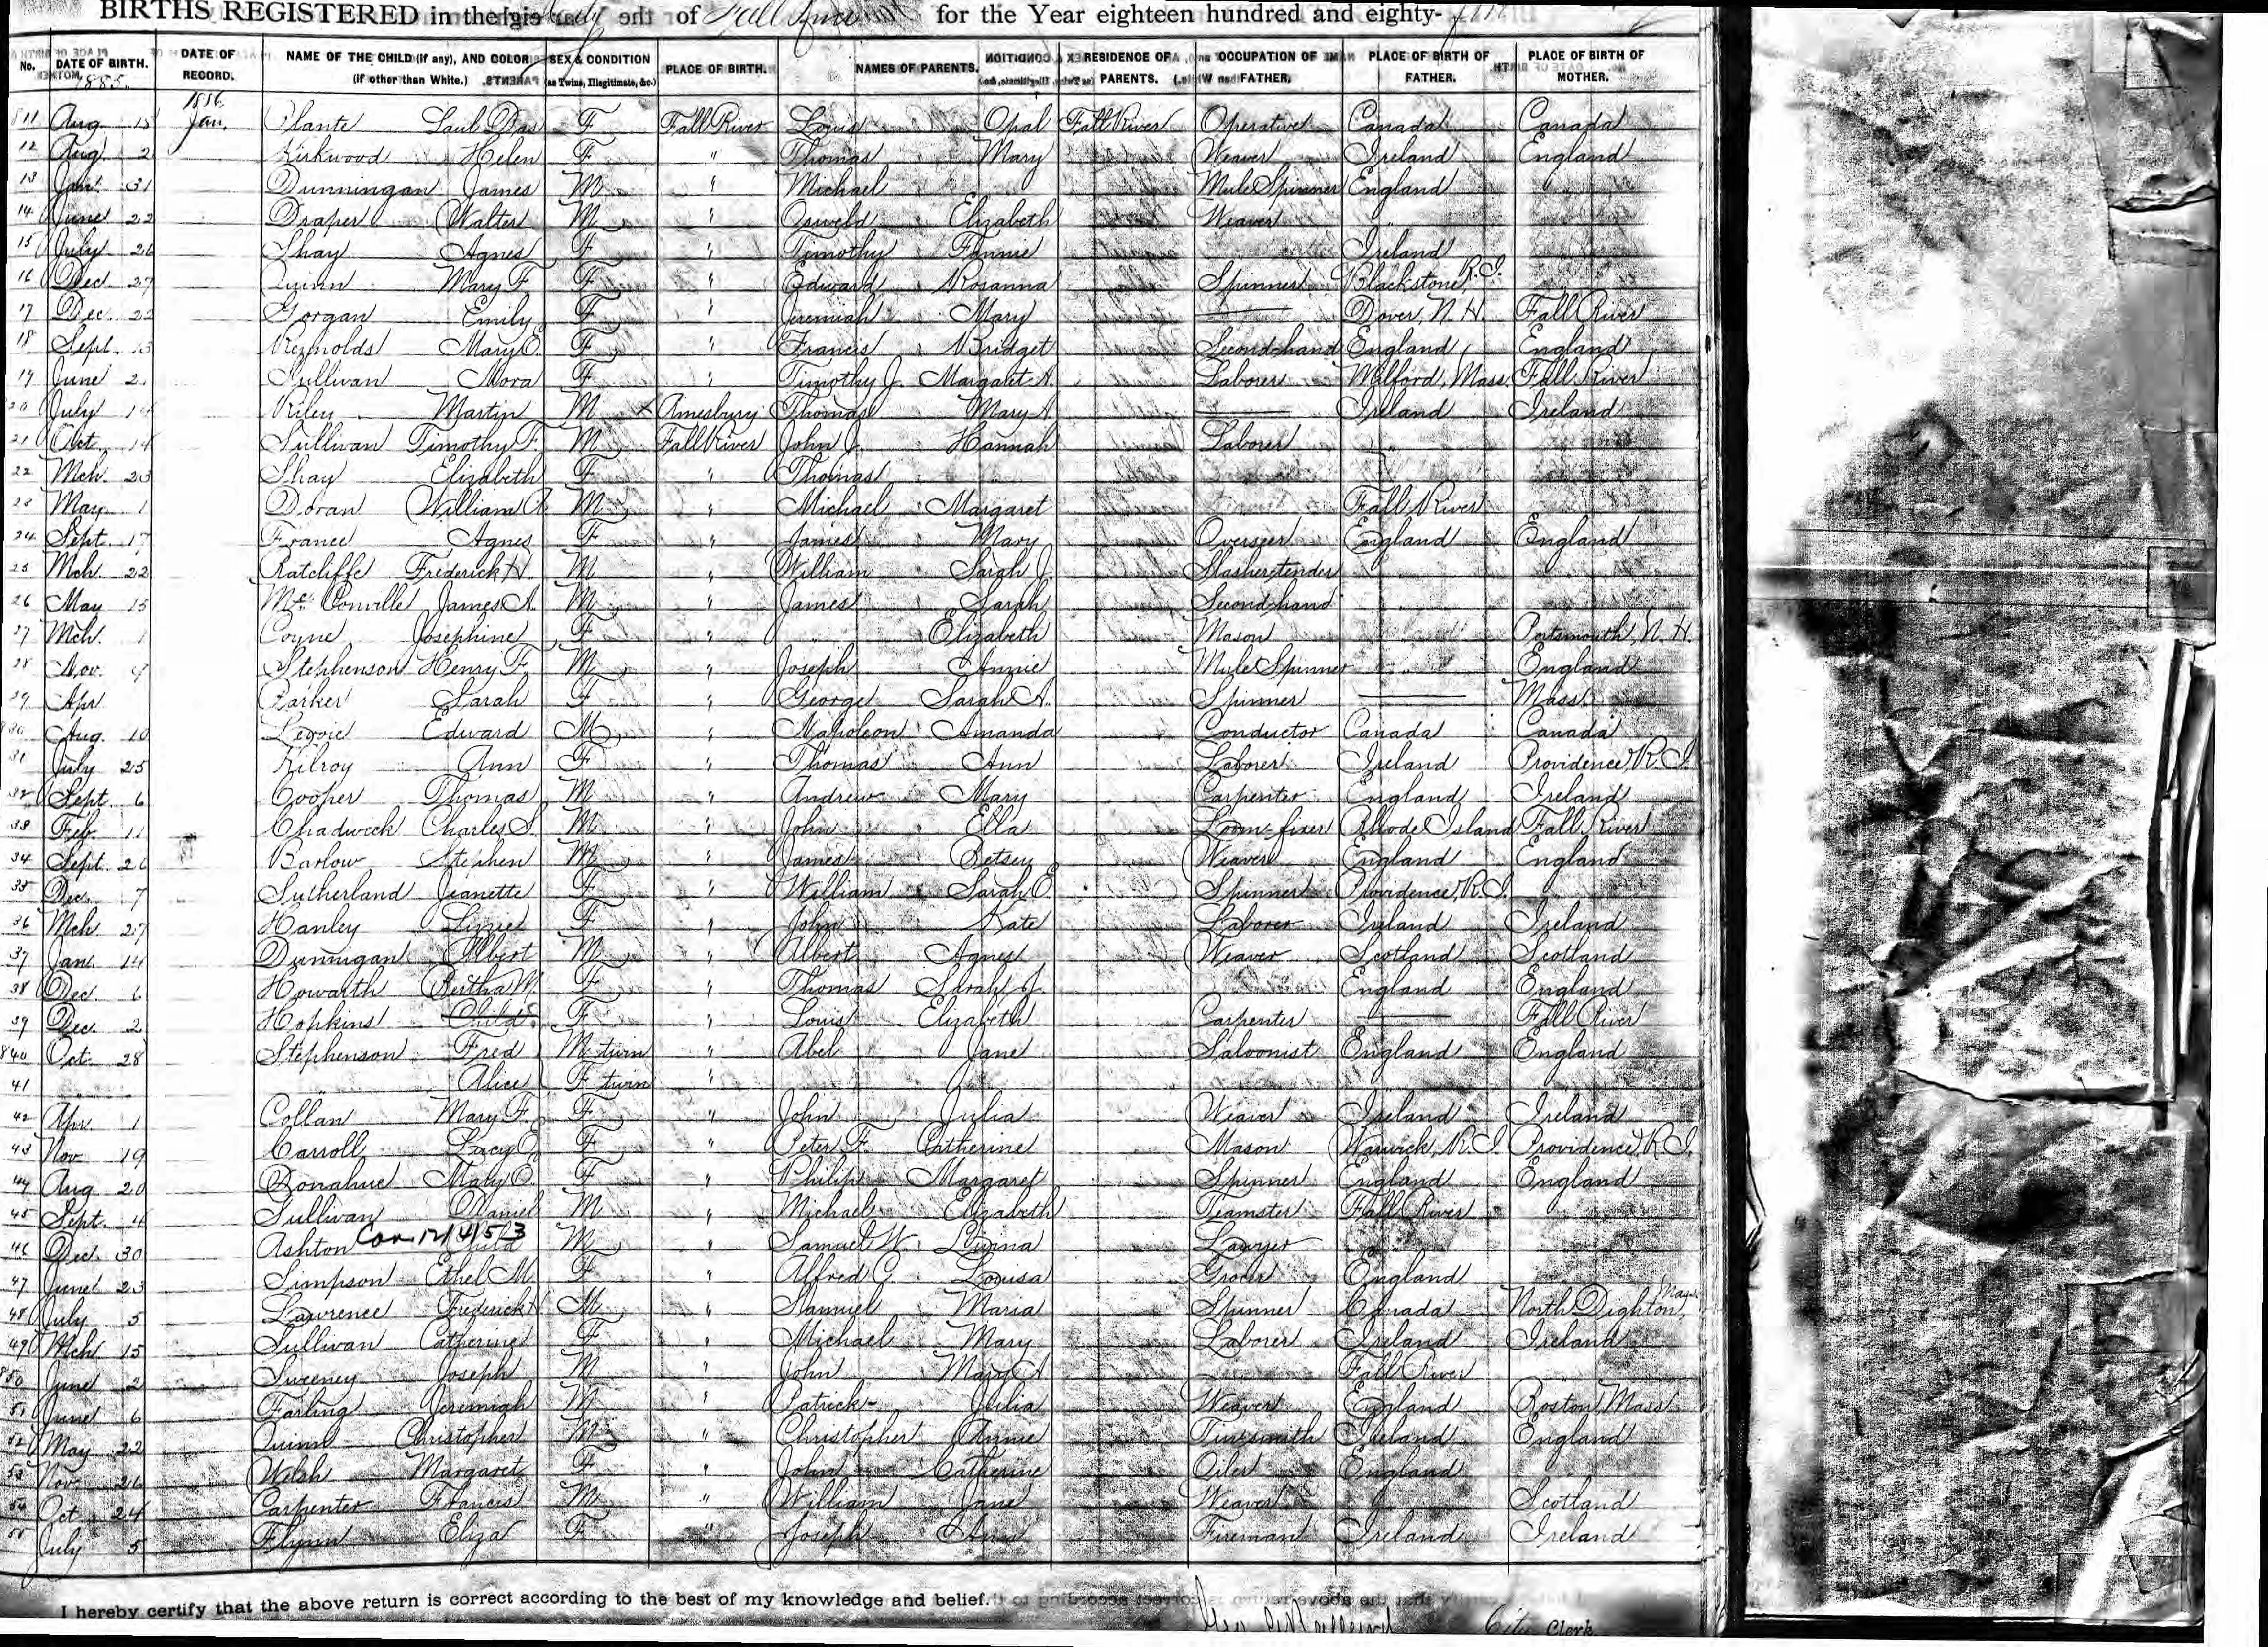 BIRTHS REGISTERED in the City of Fall River for the Year eighteen hundred and eighty-
No. DATE OF BIRTH. DATE OF RECORD. NAME OF THE CHILD (if any), AND COLOR (if other than White.) SEX & CONDITION (as Twins, Illegitimate, &c.) PLACE OF BIRTH. NAMES OF PARENTS. RESIDENCE OF PARENTS. OCCUPATION OF FATHER. PLACE OF BIRTH OF FATHER. PLACE OF BIRTH OF MOTHER.
1885. 1886
811 Aug. 15 Jan. Plante F Fall River Louis Opal Fall River Operative Canada Canada
12 Aug. 2 Kirkwood Helen F " Thomas Mary Weaver Ireland England
13 Jan. 31 Dunningan James M " Michael Mule Spinner England "
14 June 22 Draper Walter M " Osweld Elizabeth Weaver "
15 July 26 Shay Agnes F " Timothy Fannie Ireland
16 Dec. 27 Quinn Mary F. F " Edward Rosanna Spinner Blackstone, R.I.
17 Dec. 22 Gorgan Emily F " Jeremiah Mary — Dover, N.H. Fall River
18 Sept. 13 Reynolds Mary E. F " Francis Bridget Second-hand England England
19 June 2 Sullivan Mora F " Timothy J. Margaret A. Laborer Milford, Mass. Fall River
20 July 14 Riley Martin M × Amesbury Thomas Mary A. — Ireland Ireland
21 Oct. 14 Sullivan Timothy F. M Fall River John J. Hannah Laborer " "
22 Mch. 23 Shay Elizabeth F " Thomas
23 May 1 Doran William M " Michael Margaret Fall River
24 Sept. 17 France Agnes F " James Mary Overseer England England
25 Mch. 22 Ratcliffe Frederick H. M " William Sarah J. Slasher tender " "
26 May 15 McConville James A. M " James Sarah Second hand " "
27 Mch. 1 Coyne Josephine F " " Elizabeth Mason " Portsmouth, N.H.
28 Nov. 9 Stephenson Henry F. M " Joseph Annie Mule Spinner " England
29 Apr. Parker Sarah F " George Sarah A. Spinner — Mass.
830 Aug. 10 Legoie Edward M " Napoleon Amanda Conductor Canada Canada
31 July 25 Kilroy Ann F " Thomas Ann Laborer Ireland Providence, R.I.
32 Sept. 6 Cooper Thomas M " Andrew Mary Carpenter England Ireland
33 Feb. 11 Chadwick Charles S. M " John Ella Loom-fixer Rhode Island Fall River
34 Sept. 26 Barlow Stephen M " James Betsey Weaver England England
35 Dec. 7 Sutherland Jeanette F " William Sarah E. Spinner Providence, R.I. "
36 Mch. 27 Hanley Lizzie F " John Kate Laborer Ireland Ireland
37 Jan. 14 Dunnigan Albert M " Albert Agnes Weaver Scotland Scotland
38 Dec. 6 Howarth Bertha M. F " Thomas Sarah J. England England
39 Dec. 2 Hopkins Child F " Louis Elizabeth Carpenter — Fall River
840 Oct. 28 Stephenson Fred M twin " Abel Jane Saloonist England England
41 " " " Alice F twin "
42 Apr. 1 Collan Mary F. F " John Julia Weaver Ireland Ireland
43 Nov 19 Carroll Lucy E. F " Peter F. Catherine Mason Warwick, R.I. Providence, R.I.
44 Aug 20 Donahue Mary E. F " Philip Margaret Spinner England England
45 Sept. 4 Sullivan Daniel M " Michael Elizabeth Teamster Fall River "
46 Dec. 30 Ashton Child Cor. 12/4/53 M " Samuel W. Levina Lawyer "
47 June 23 Simpson Ethel M. F " Alfred C. Louisa Grocer England
48 July 5 Lawrence Frederick M " Samuel Maria Spinner Canada North Dighton, Mass.
49 Mch 15 Sullivan Catherine F " Michael Mary Laborer Ireland Ireland
850 June 2 Sweeney Joseph M " John Mary A. Fall River
51 June 6 Farling Jeremiah M " Patrick Julia Weaver England Boston, Mass
52 May 22 Quinn Christopher M " Christopher Annie Tinsmith Ireland England
53 Nov 26 Welsh Margaret F " John Catherine Oiler England
54 Oct 24 Carpenter Francis M " William Jane Weaver " Scotland
55 July 5 Flynn Eliza F " Joseph Ann Fireman Ireland Ireland
I hereby certify that the above return is correct according to the best of my knowledge and belief.
City Clerk.